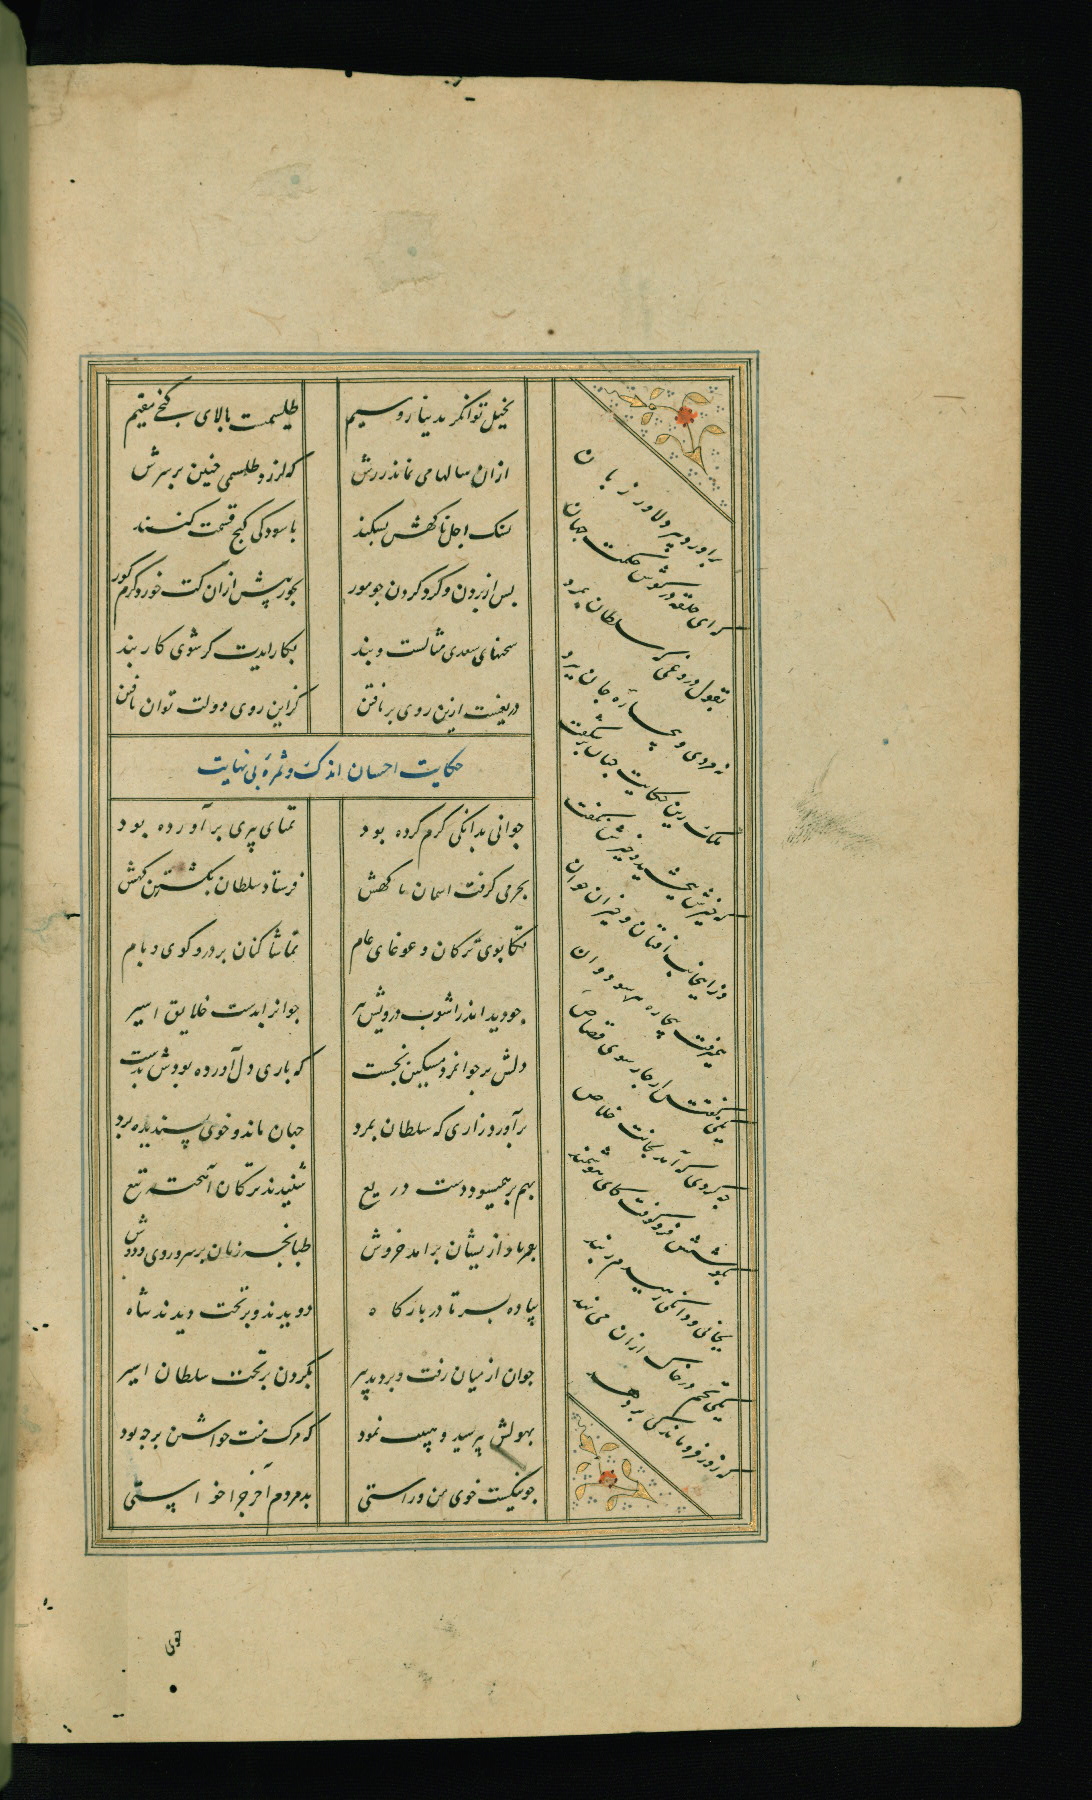 بخیل توانگر بدینار و سیم طلسمیست بالای گنجی مقیم
از ان سالها می نماند زرش که لرزد طلسمی چنین بر سرش
بسنک اجل ناکهش بشکنند باسودکی کنج قسمت کنند
پس از بردن و کرد کردن چو مور بخور پیش از ان کت خورد کرم کور
سخنهای سعدی مثالست و پند بکار ایدت گر شوی کار بند
دریغست ازین روی برتافتن کزین روی دولت توان یافتن
حکایت احسان اندک و ثمرهٔ بی نهایت
جوانی بدانکی کرم کرده بود تمنای پیری برآورده بود
بجرمی گرفت اسمان ناکهش فرستاد سلطان بکشتن کهش
تکاپوی ترکان و غوغای عام تماشا کنان بر در و کوی و بام
چو دید اندر اشوب درویش پیر جوانرا بدست خلایق اسیر
دلش بر جوانمرد مسکین بخست که باری دل آورده بودش بدست
برآورد زاری که سلطان بمرد جهان ماند و خوی پسندیده برد
بهم بر همیسود دست دریغ شنیدند ترکان آهخته تیغ
بفریاد از یشان برامد خروش طبانچه زنان بر سر و روی و دوش
پیاده بسر تا در بارکاه دویدند و بر تخت دیدند شاه
جوان از میان رفت و بردند پیر بگردن بر تخت سلطان اسیر
بهولش بپرسید و هیبت نمود که مرک منت خواستن بر چه بود
چو نیکست خوی من و راستی بد مردم آخر چرا خواستی
برآورد پیر دلاور زبان
که ای حلقه در گوش حکمت جهان
بقول دروغی که سلطان بمرد
نمردی و بیچاره جان ببرد
ملک زین حکایت چنان برشکفت
که چیزش ببخشید و چیزش نگفت
وز اینجانب افتان و خیزان جوان
همیرفت بیچاره هر سو دوان
یکی گفتش از چار سوی قصاص
چه کردی که آمد بجانت خلاص
بگوشش فرو گفت کای هوشمند
بجانی و دانکی رهیدم ز بند
یکی تخم در خاک ازان می نهد
که روز فروماندکی بر دهد